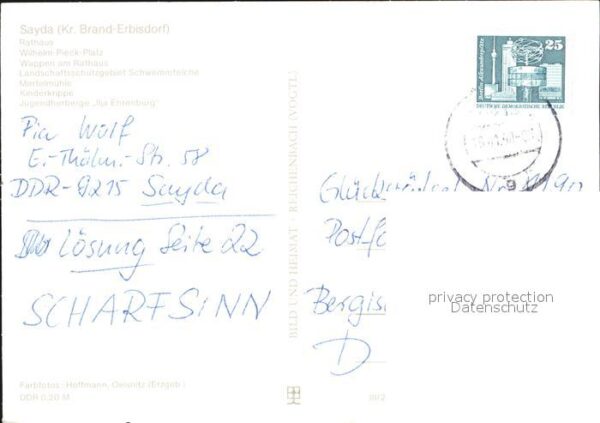 Sayda (Kr. Brand-Erbisdorf)
Rathaus
Wilhelm-Pieck-Platz
Wappen am Rathaus
Landschaftsschutzgebiet Schwemmteiche
Mertelmühle
Kinderkrippe
Jugendherberge "Ilja Ehrenburg"
25
DEUTSCHE DEMOKRATISCHE REPUBLIK
Pia Wolf
E.-Thälm.-Str. 58
DDR-9215 Sayda
Lösung Seite 22
SCHARFSINN
BILD UND HEIMAT REICHENBACH (VOGTL)
Glücksrätsel Nr.
Postfa
Bergis
D
privacy protection
Datenschutz
Farbfotos: Hoffmann, Oelsnitz (Erzgeb.)
DDR 0,20 M